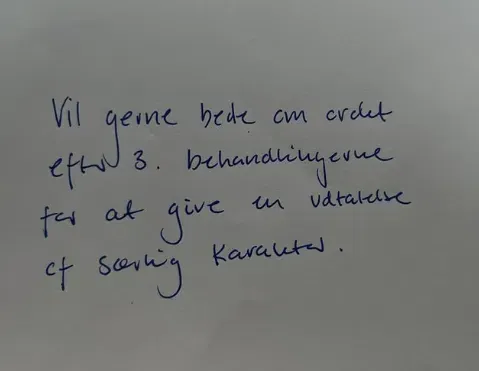 Vil gerne bede om ordet
efter 3. behandlingerne
for at give en udtalelse
af særlig karakter.